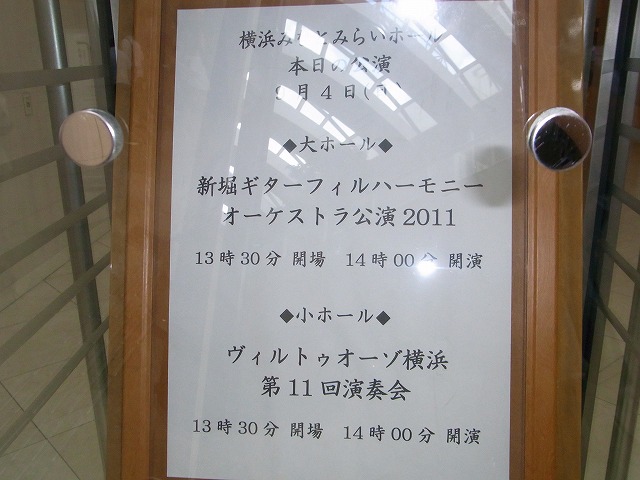 横浜みなとみらいホール
本日の公演
9月4日(日)
◆大ホール◆
新堀ギターフィルハーモニー
オーケストラ公演2011
13時30分 開場 14時00分 開演
◆小ホール◆
ヴィルトゥオーゾ横浜
第11回演奏会
13時30分 開場 14時00分 開演